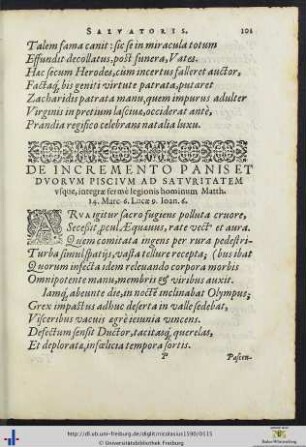 SALVATORIS. 101
Talem fama canit: sic se in miracula totum
Effundit decollatus, post funera, Vates.
Hac secum Herodes, cùm incertus falleret auctor,
Factaq́; bis geniti virtute patrata, putaret
Zacharidis patrata manu, quem impurus adulter
Virginis in pretium lasciuæ, occiderat antè,
Prandia regifico celebrans natalia luxu.
DE INCREMENTO PANIS ET
DVORVM PISCIVM AD SATVRITATEM
vsque, integræ fermè legionis hominum Matth.
14. Marc. 6. Lucæ 9. Ioan. 6.
AVXigitur sacro fugiens polluta cruore,
Secessit, Æquauus, rate vect⁹ et aura.
Quem comitata ingens per rura pedestri-
Turba simul spatijs, vasta tellure recepta; (bus ibat
Quorum infecta idem releuando corpora morbis
Omnipotente manu, membris & viribus auxit.
Iamq́; abeunte die, in noctē inclinabat Olympus;
Grex impastus adhuc deserta in valle sedebat,
Visceribus vacuis agrè ieiunia vincens.
Defectum sensit Ductor, tacitasq́; querelas,
Et deplorata, infœlicia tempora sortis.
P Pascen-
http://dl.ub.uni-freiburg.de/diglit/nicolausius1590/0115
© Universitätsbibliothek Freiburg